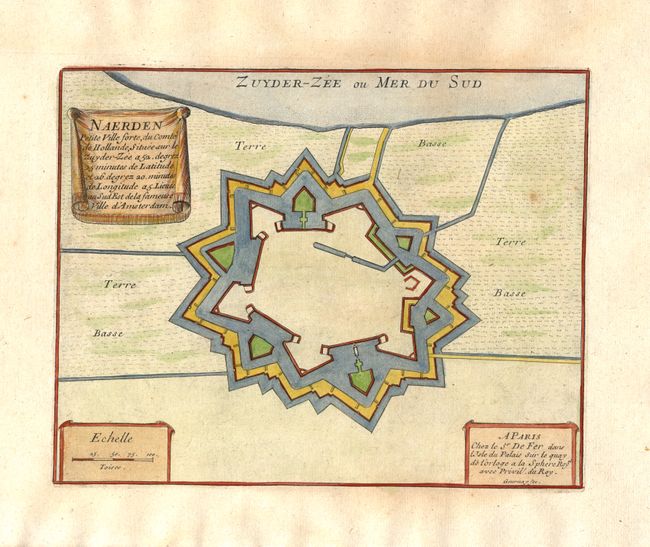 ZUYDER-ZÉE OU MER DU SUD
NAERDEN
Petite Ville forte, du Comté
de Hollande, Située sur le
Zuyder-Zée a 52. degrez
25 minutes de Latitude
et 26. degrez 20. minute
de Longitude a 5 Lieües
au Sud Est de la fameuse
Ville d'Amsterdam.
Terre
Basse
Terre
Basse
Terre
Basse
Echelle
25. 50. 75. 100.
Toises.
A PARIS
Chez le Sr. De Fer dans
l'Isle du Palais sur le quay
de l'orloge a la Sphere Royle
avec Privil. du Roy.